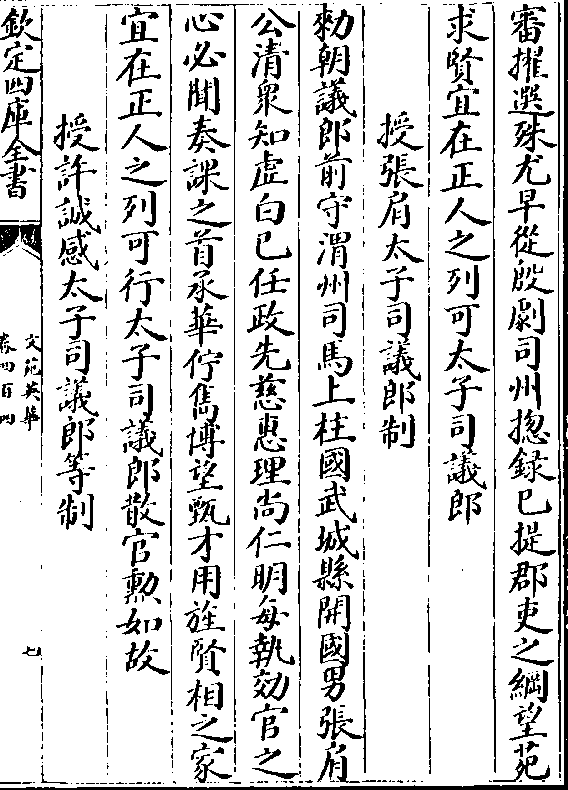 審擢選殊尤早從殷劇司州揔錄已提郡吏之綱望苑
求賢宜在正人之列可太子司議郎
授張肩太子司議郎制
勑朝議郎前守渭州司馬上柱國武城縣開國男張肩
公清衆知虚白已任政先慈惠理尚仁明每執効官之
心必聞奏課之首承華佇雋博望甄才用旌賢相之家
宜在正人之列可行太子司議郎散官勲如故
授許誠感太子司議郎等制
欽定四庫全書
文苑英華
卷四百四
七